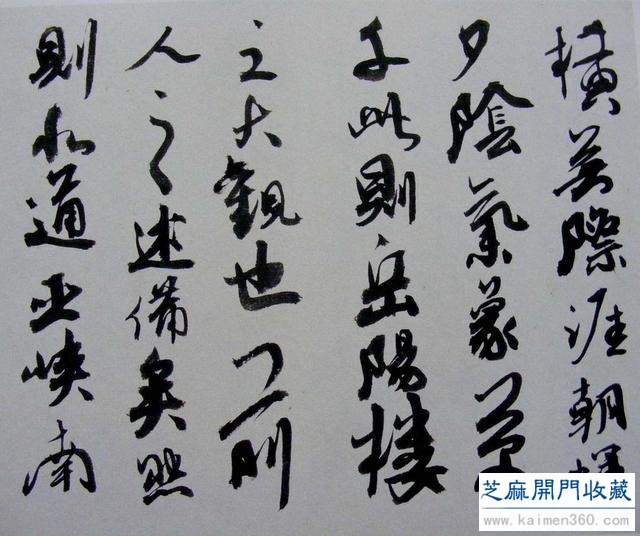 橫無際涯朝暉
夕陰氣象萬
千此則岳陽樓
之大觀也前
人之述備矣然
則北通巫峽南
芝麻開門收藏
www.kaimen360.com